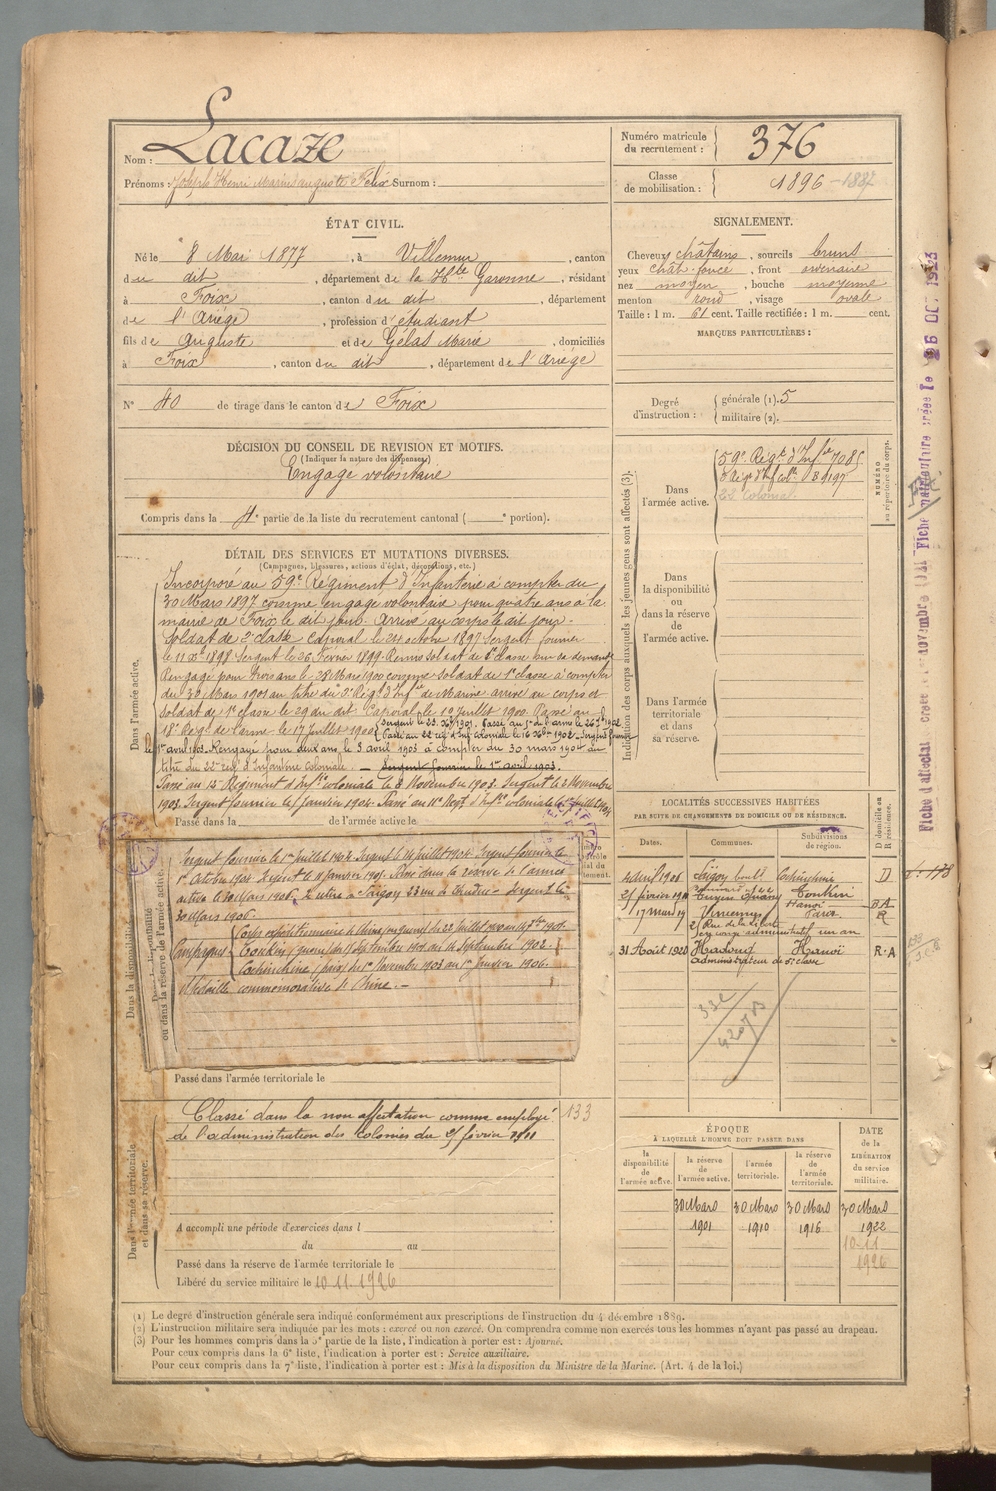 Nom : Lacaze
Numéro matricule du recrutement : 376
Prénoms : Joseph Henri Marius auguste Felix Surnom :
Classe de mobilisation : 1896 - 1887
ÉTAT CIVIL.
Né le 8 Mai 1877, à Villemur, canton
du dit, département de la Hte Garonne, résidant
à Foix, canton du dit, département
de l'Ariège, profession d'étudiant
fils de Auguste et de Gélas Marie, domiciliés
à Foix, canton du dit, département de l'Ariège
N° 40 de tirage dans le canton de Foix
SIGNALEMENT.
Cheveux châtains, sourcils bruns
yeux chât. foncé, front ordinaire
nez moyen, bouche moyenne
menton rond, visage ovale
Taille : 1 m. 61 cent. Taille rectifiée : 1 m. cent.
MARQUES PARTICULIÈRES :
Degré d'instruction : générale (1). 5
militaire (2).
DÉCISION DU CONSEIL DE REVISION ET MOTIFS.
(Indiquer la nature des dispenses)
Engagé volontaire
Compris dans la 4e partie de la liste du recrutement cantonal ( e portion).
Indication des corps auxquels les jeunes gens sont affectés (3).
NUMÉRO au répertoire du corps.
Dans l'armée active.
59e Régt d'Infie 7085
22 Colonial.
Dans la disponibilité ou dans la réserve de l'armée active.
Dans l'armée territoriale et dans sa réserve.
DÉTAIL DES SERVICES ET MUTATIONS DIVERSES.
(Campagnes, blessures, actions d'éclat, décorations, etc.)
Dans l'armée active.
Incorporé au 59e Régiment d'Infanterie à compter du
30 Mars 1897 comme engagé volontaire pour quatre ans à la
mairie de Foix le dit jour. Arrivé au corps le dit jour.
Soldat de 2e classe Caporal le 24 octobre 1897 Sergent fourrier
le 11 Xbre 1898 Sergent le 26 Février 1899. Remis soldat de classe sur sa demande
Rengagé pour trois ans le 28 Mars 1900 comme soldat de 1e classe à compter
du 30 Mars 1901 au titre du Régt d'Infie de Marine arrivé au corps et
soldat de 1e classe le 29 du dit. Caporal le 12 Juillet 1900. Passé au
18e Reg. de l'arme le 17 juillet 1900
Passé au 22e reg d'Inf coloniale le 16
1er avril 1903. Rengagé pour deux ans le 3 avril 1903 à compter du 30 mars 1904 au
titre du 22e reg. d'Infanterie Coloniale. — Sergent fourrier le 1er avril 1903.
Passé au Régiment d'Infie coloniale le 8 Novembre 1903. Sergent le 8 Novembre
1903. Sergent fourrier le 1 janvier 1904. Passé au 11e Regt d'Infie coloniale le 1er juillet 1904
Passé dans la de l'armée active le
Dans la disponibilité ou dans la réserve de l'armée active.
Sergent fourrier le 1er juillet 1904. Sergent le 14 juillet 1904. Sergent fourrier le
1er Octobre 1904. Sergent le 11 janvier 1905. Passé dans la réserve de l'armée
active le 30 Mars 1906. Se retire à Saïgon 33 rue Sergent le
30 Mars 1906.
Campagnes
Corps expéditionnaire de Chine (guerre) du 22 juillet 1900 au 1901.
Tonkin (guerre) du 18 Septembre 1901 au 14 Septembre 1902.
Cochinchine (paix) du 1er Novembre 1903 au 1er Janvier 1906.
Médaille commémorative de Chine. —
Passé dans l'armée territoriale le
Dans l'armée territoriale et dans sa réserve.
Classé dans la non affectation comme employé 133
de l'administration des Colonies du 25 février 1911
A accompli une période d'exercices dans l
du au
Passé dans la réserve de l'armée territoriale le
Libéré du service militaire le 10.11.1926
LOCALITÉS SUCCESSIVES HABITÉES
PAR SUITE DE CHANGEMENTS DE DOMICILE OU DE RÉSIDENCE.
Dates. Communes. Subdivisions de région. D domicile ou R résidence.
4 avril 1906 Saïgon Cochinchine D
25 février 1911 Tuyen Quang Tonkin Hanoï
17 mars 19 Vincennes Paris R
2 Rue de la Liberté
31 Août 1920 Hadong Hanoï R.A
administrateur de 5e classe
332
4207B
ÉPOQUE
À LAQUELLE L'HOMME DOIT PASSER DANS
la disponibilité de l'armée active. la réserve de l'armée active. l'armée territoriale. la réserve de l'armée territoriale. DATE de la LIBÉRATION du service militaire.
30 Mars 1901 30 Mars 1910 30 Mars 1916 30 Mars 1922
10-11 1926
(1) Le degré d'instruction générale sera indiqué conformément aux prescriptions de l'instruction du 4 décembre 1889.
(2) L'instruction militaire sera indiquée par les mots : exercé ou non exercé. On comprendra comme non exercés tous les hommes n'ayant pas passé au drapeau.
(3) Pour les hommes compris dans la 5e partie de la liste, l'indication à porter est : Ajourné.
Pour ceux compris dans la 6e liste, l'indication à porter est : Service auxiliaire.
Pour ceux compris dans la 7e liste, l'indication à porter est : Mis à la disposition du Ministre de la Marine. (Art. 4 de la loi.)